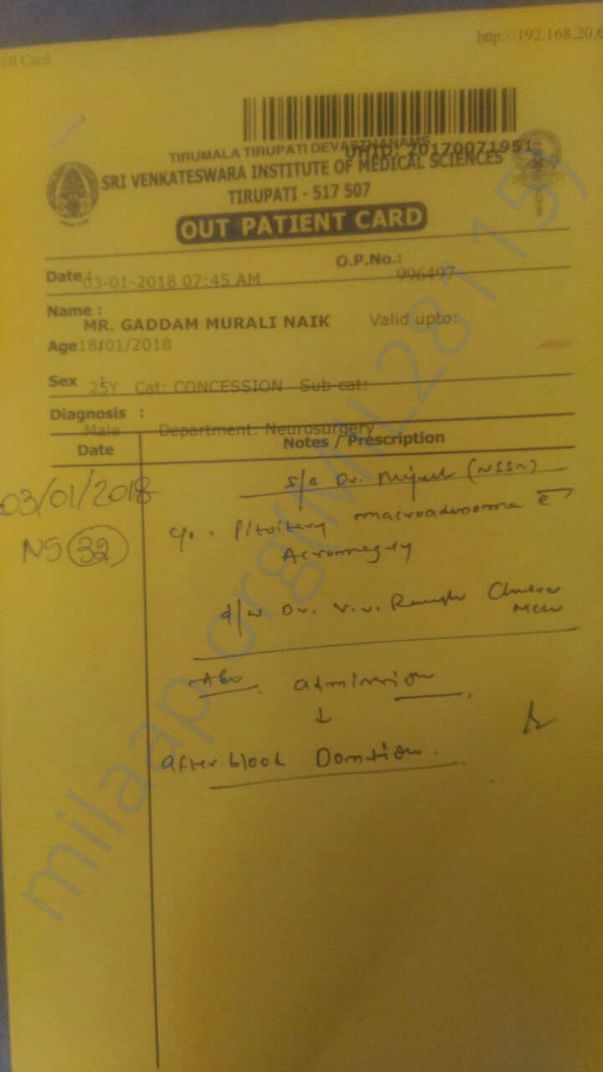 http://192.168.20.6
OI Card
UHID: 20170071951
TIRUMALA TIRUPATI DEVASTHANAMS
SRI VENKATESWARA INSTITUTE OF MEDICAL SCIENCES
TIRUPATI - 517 507
OUT PATIENT CARD
O.P.No.:
Date : 03-01-2018 07:45 AM 996497
Name :
MR. GADDAM MURALI NAIK Valid upto:
Age 18/01/2018
Sex : 25Y Cat: CONCESSION Sub-cat:
Diagnosis :
Male Department: Neurosurgery
Date Notes / Prescription
03/01/2018 S/B Dr. (NSSR)
NS 32
Pituitary macroadenoma c̄
Acromegaly
d/w Dr. V.V. Ramesh Chandra
admission
↓
after blood Donation.
milaap.org(MIL28115)